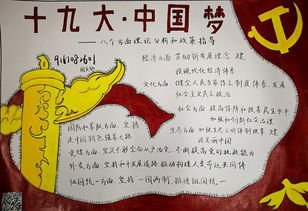 十九大·中国梦
——八个方面理论分析和政策指导
经济方面 贯彻新发展理念，建
设现代化经济体系
文化方面，健全人民当家作主制度体系，发展
社会主义民主政治
社会方面，提高保障和改善民生水平
加强和创新社会治理
生态方面，加快生态文明体制改革，建
设美丽中国
国防和军队方面，坚持
走中国特色强军之路
党建方面 坚定不移全面从严治党，不断提高党的执政能力
外交方面 坚持和平发展道路，推动构建人类命运共同体
祖国统一方面，坚持“一国两制”，推进祖国统一